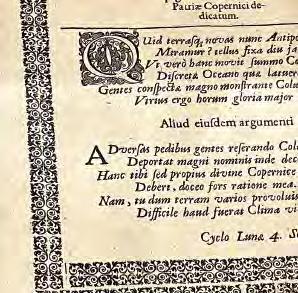 Patriæ Copernici de-
dicatum.
QUid terrasq́; novas nunc Antipo
Miramur? tellus fixa diu ja
Ut verò hanc movit summo Co
Discreta Oceano quæ latuer
Gentes conspectæ magno monstrante Colu
Virtus ergo horum gloria major
Aliud ejusdem argumenti
ADversas pedibus gentes reserando Colu
Deportat magni nominis inde dec
Hanc tibi sed propius divine Copernice
Debert, doceo fors ratione mea.
Nam, tu dum terram varios provoluis
Difficile haud fueras Clima vi
Cyclo Lunæ 4. S